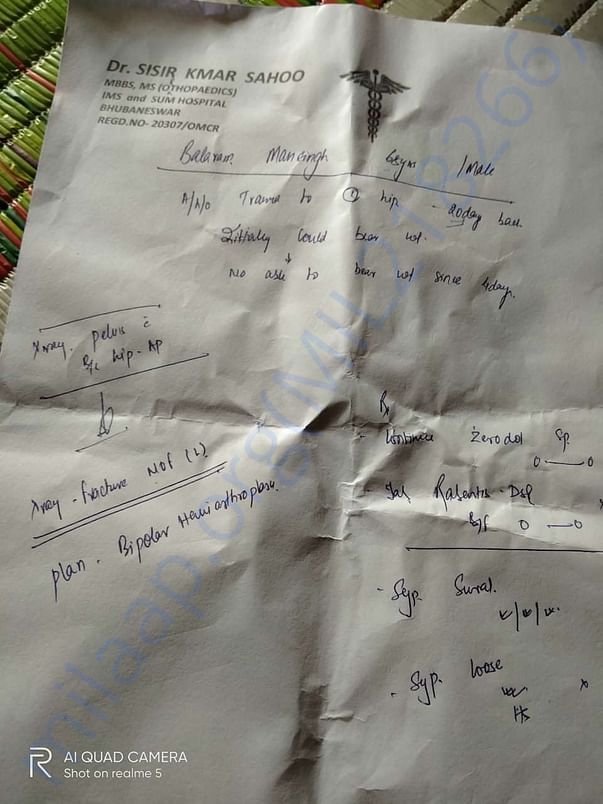 Dr. SISIR KMAR SAHOO
MBBS, MS (OTHOPAEDICS)
IMS and SUM HOSPITAL
BHUBANESWAR
REGD.NO- 20307/OMCR
Balaram Mansingh /Male
Trauma to (L) hip - 20day back
Initially Could bear wt.
↓
No able to bear wt since 4day.
Xray. pelvis c̄
B/L hip - AP
Xray - fracture NOF (L)
plan - Bipolar Hemiarthroplasty
Rx
- Continue Zerodol Sp.
0——0
- Tab Rabentis - DSR
B/f 0——0
- Syp. Sucral
- Syp. loose
HS
milaap.org(MIL218266)
R AI QUAD CAMERA
Shot on realme 5